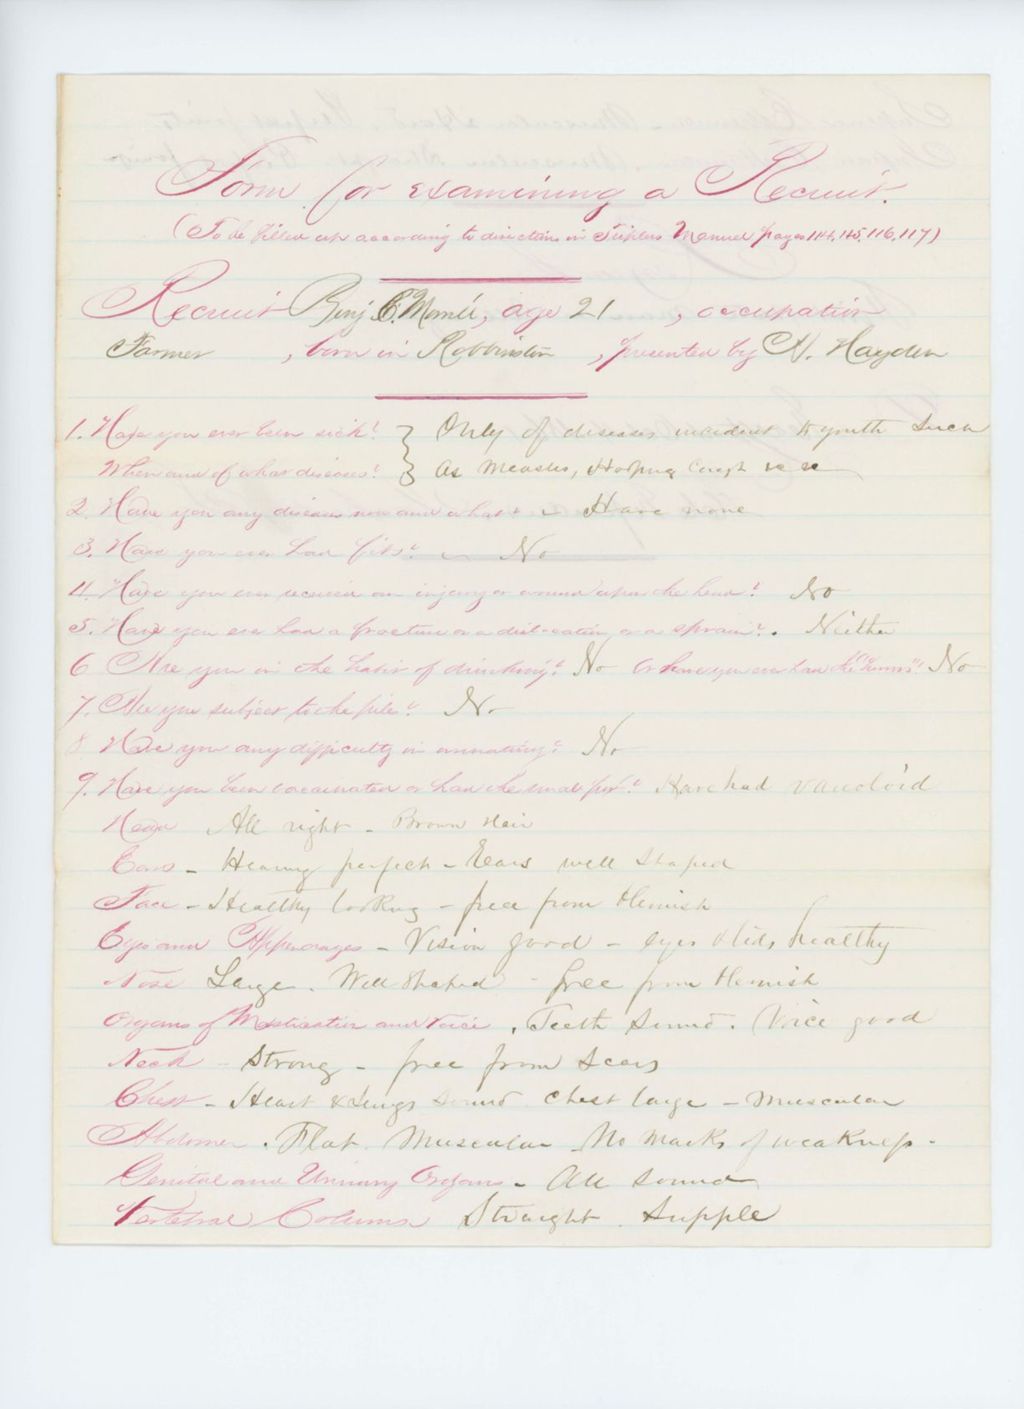 Form for examining a Recruit.
(To be filled up according to directions in Triplers Manual pages 114, 115, 116, 117)
Recruit Benj C. age 21, occupation
Farmer, born in Robbinston, presented by N. Hayden
1. Have you ever been sick? } Only of diseases incident to youth Such
When and of what diseases? } As Measles, Hooping Cough &c &c
2. Have you any disease now and what - Have none
3. Have you ever had fits? - No
4. Have you ever received an injury or wound upon the head? No
5. Have you ever had a fracture or a dislocation or a sprain?. Neither
6 Are you in the habit of drinking? No Or have you ever had the "horrors"? No
7. Are you subject to the piles? No
8 Have you any difficulty in urinating? No
9. Have you been vaccinated or had the small pox? Have had varioloid
Head All right - Brown Hair
Ears - Hearing perfect - Ears well Shaped
Face - Healthy looking - free from blemish
Eyes and Appendages - Vision good - eyes & lids healthy
Nose Large. Well Shaped - free from blemish
Organs of Mastication and Voice. Teeth Sound. Voice good
Neck - Strong - free from Scars
Chest - Heart & Lungs Sound. Chest large - Muscular
Abdomen. Flat. Muscular No Marks of weakness.
Genital and Urinary Organs - All Sound
Vertebral Column Straight. Supple